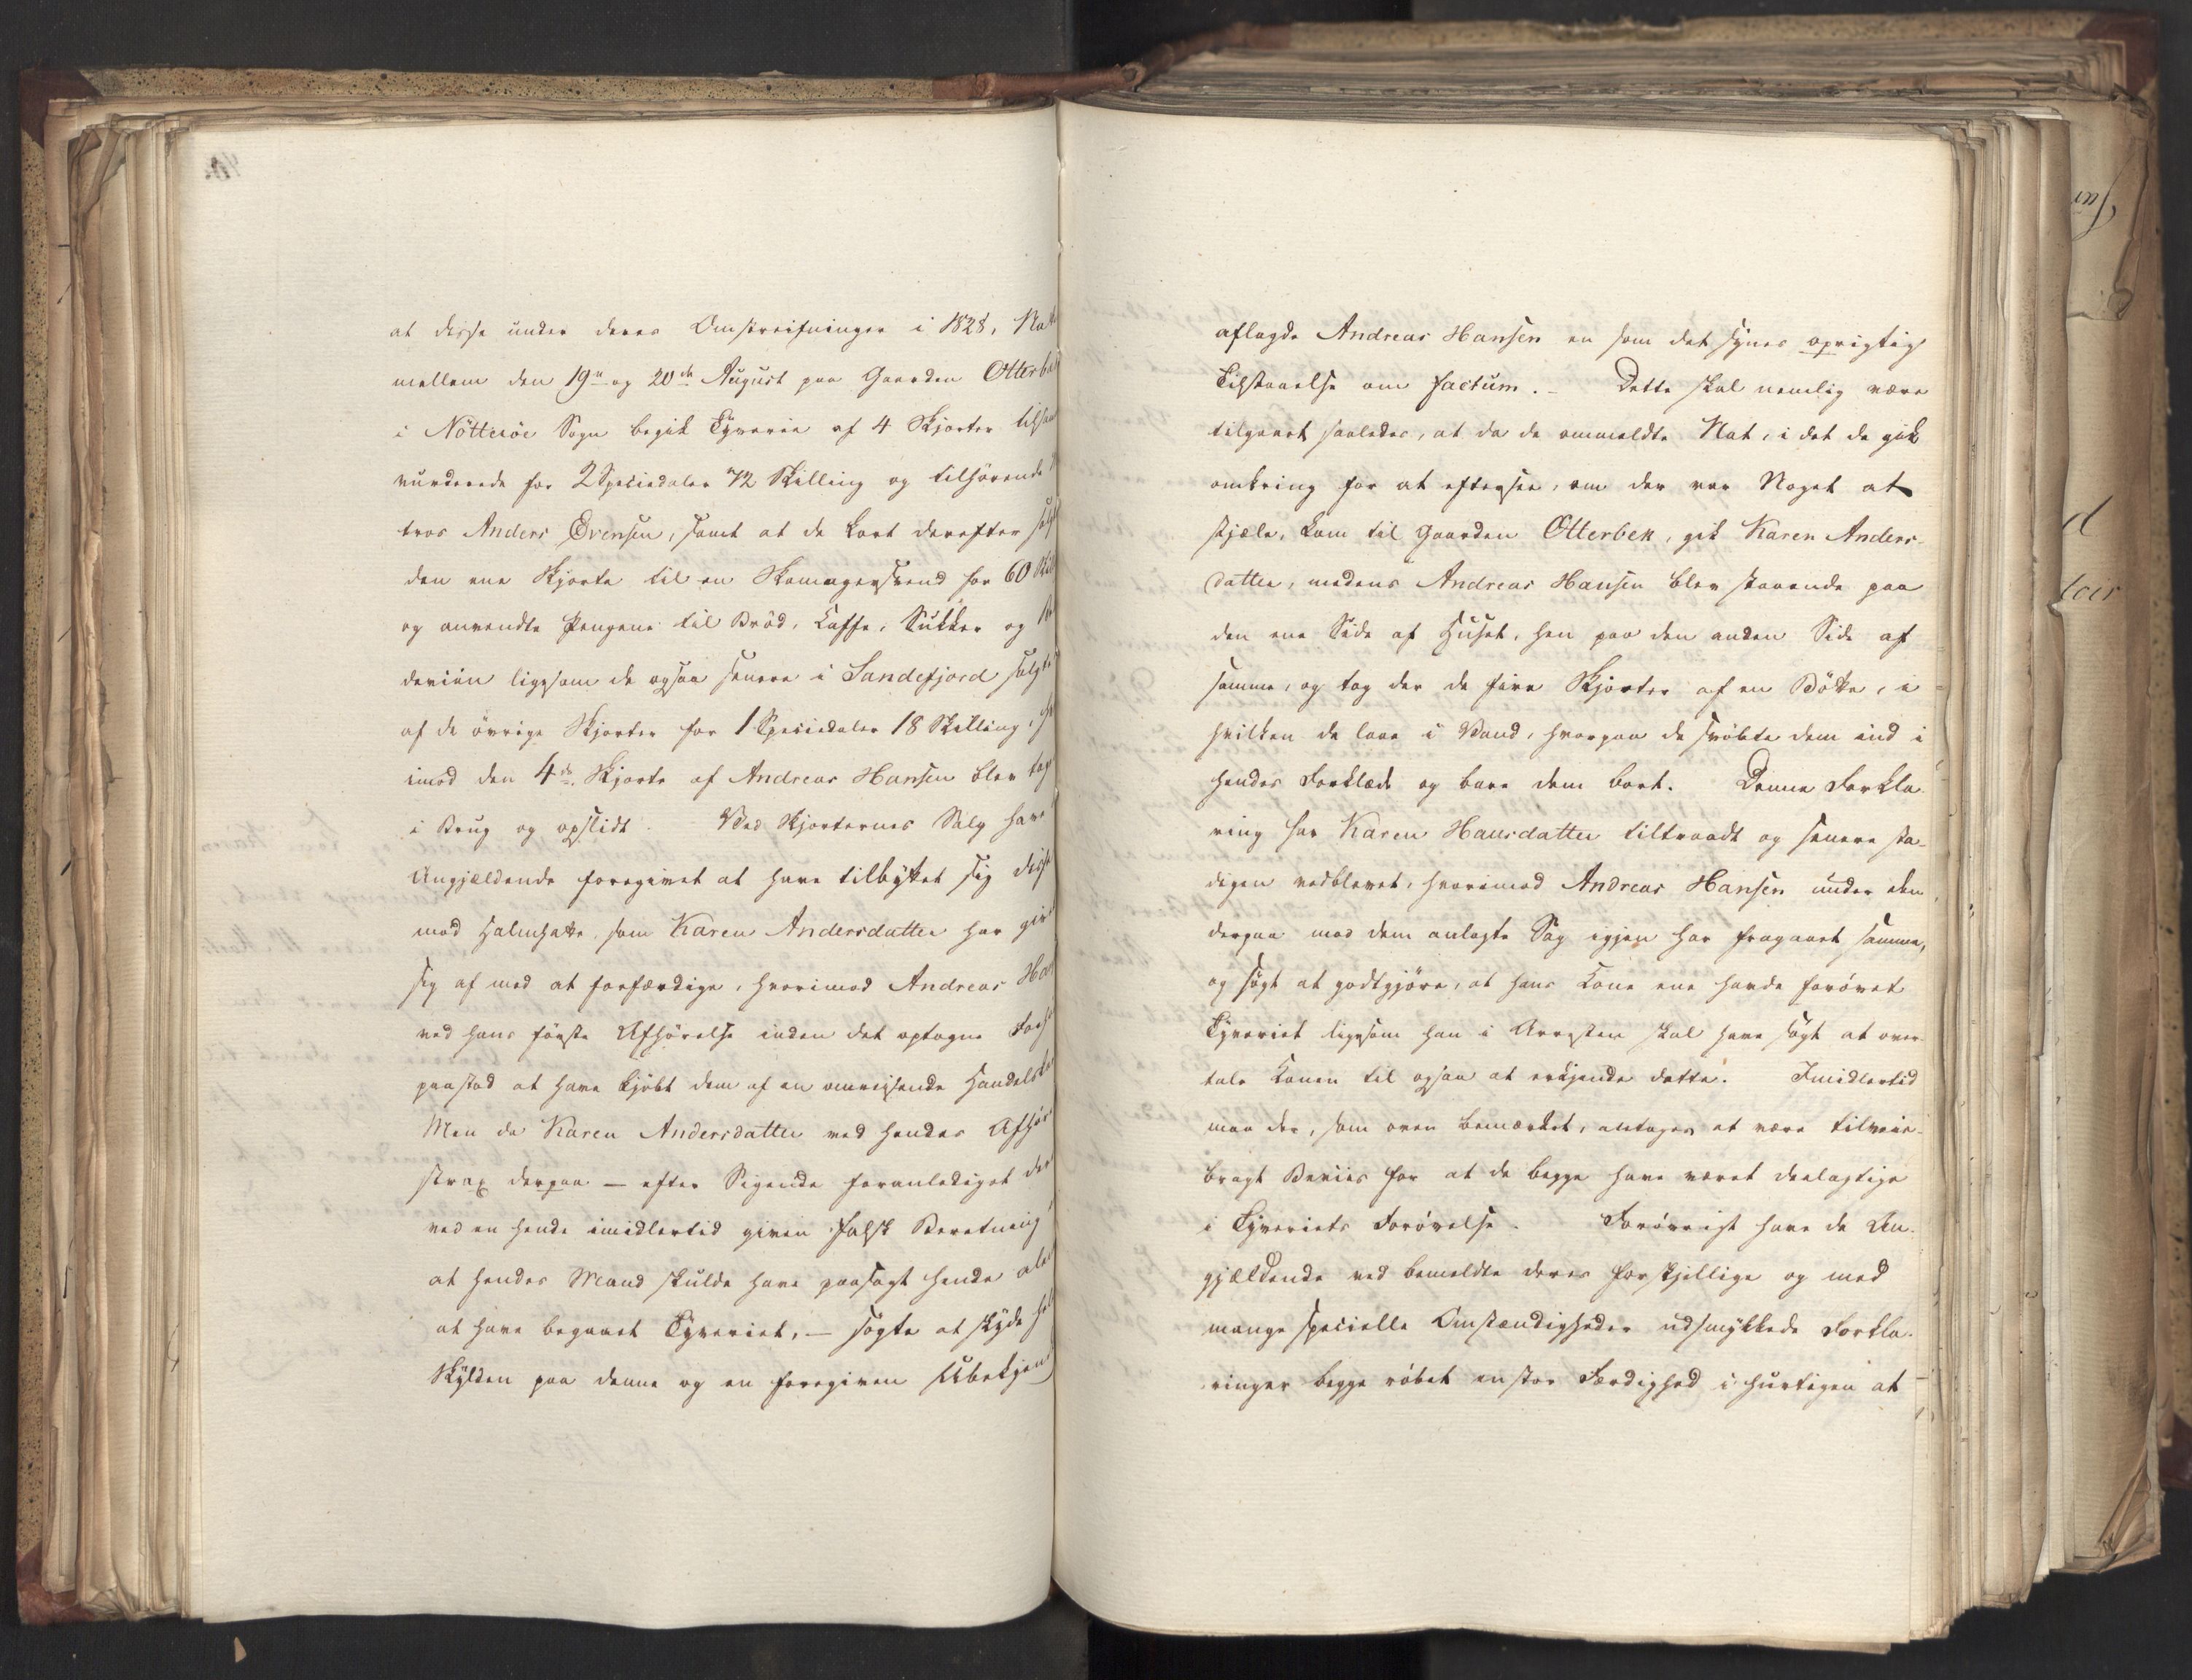 at disse under deres Omstreifninger i 1828, Nat
mellem den 19de og 20de August paa Gaarden Otterbe
i Nötteröe Sogn begik Tyverie af 4 Skjorter tilsam
vurderede for 2 Speciedaler 72 Skilling og tilhörende
tros Anders Evensen, samt at de kort derefter solgt
den ene Skjorte til en Skomagersvend for 60 Skil
og anvendte Pengene til Bröd, Kaffe, Sukker og
deviin ligesom de ogsaa senere i Sandefjord solgte
af de övrige Skjorter for 1 Speciedaler 18 Skilling, h
imod den 4de Skjorte af Andreas Hansen blev tag
i Brug og opslidt. Ved Skjorternes Salg have
Angjældende foregivet at have tilbyttet sig diss
mod Halmhatte, som Karen Andersdatter har giv
sig af med at forfærdige, hvorimod Andreas Han
ved hans förste Afhörelse inden det optagne Forh
paastod at have kjöbt dem af en omreisende Handels
Men da Karen Andersdatter ved hendes Afhör
strax derpaa — efter Sigende foranlediget der
ved en hende imidlertid given falsk Beretning
at hendes Mand skulde have paasagt hende ale
at have begaaet Tyveriet, — sögte at skyde hel
Skylden paa denne og en foregiven Ubekjen
aflagde Andreas Hansen en som det synes oprigtig
Tilstaaelse om factum. – Dette skal nemlig være
tilgaaet saaledes, at da de ommeldte Nat, i det de gik
omkring for at eftersee, om der var Noget at
stjæle, kom til Gaarden Otterbek, gik Karen Anders-
datter, medens Andreas Hansen blev staaende paa
den ene Side af Huset, hen paa den anden Side af
samme, og tog der de fire Skjorter af en Bötte, i
hvilken de laae i Vand, hvorpaa de svöbte dem ind i
hendes Forklæde og bare dem bort. Denne Forkla-
ring har Karen Hansdatter tiltraadt og senere sta-
digen vedblevet, hvorimod Andreas Hansen under den
derpaa mod dem anlagte Sag igjen har fragaaet samme,
og sögt at godtgjöre, at hans Kone ene havde forövet
Tyveriet ligesom han i Arresten skal have sögt at over-
tale Konen til ogsaa at erkjende dette. Imidlertid
maa der, som oven bemærket, antages at være tilveie-
bragt Beviis for at de begge have været deelagtige
i Tyveriets Forövelse. Forövrigt have de An-
gjældende ved bemeldte deres forskjellige og med
mange specielle Omstændigheder udsmykkede Forkla-
ringer begge röbet en stor Færdighed i hurtigen at